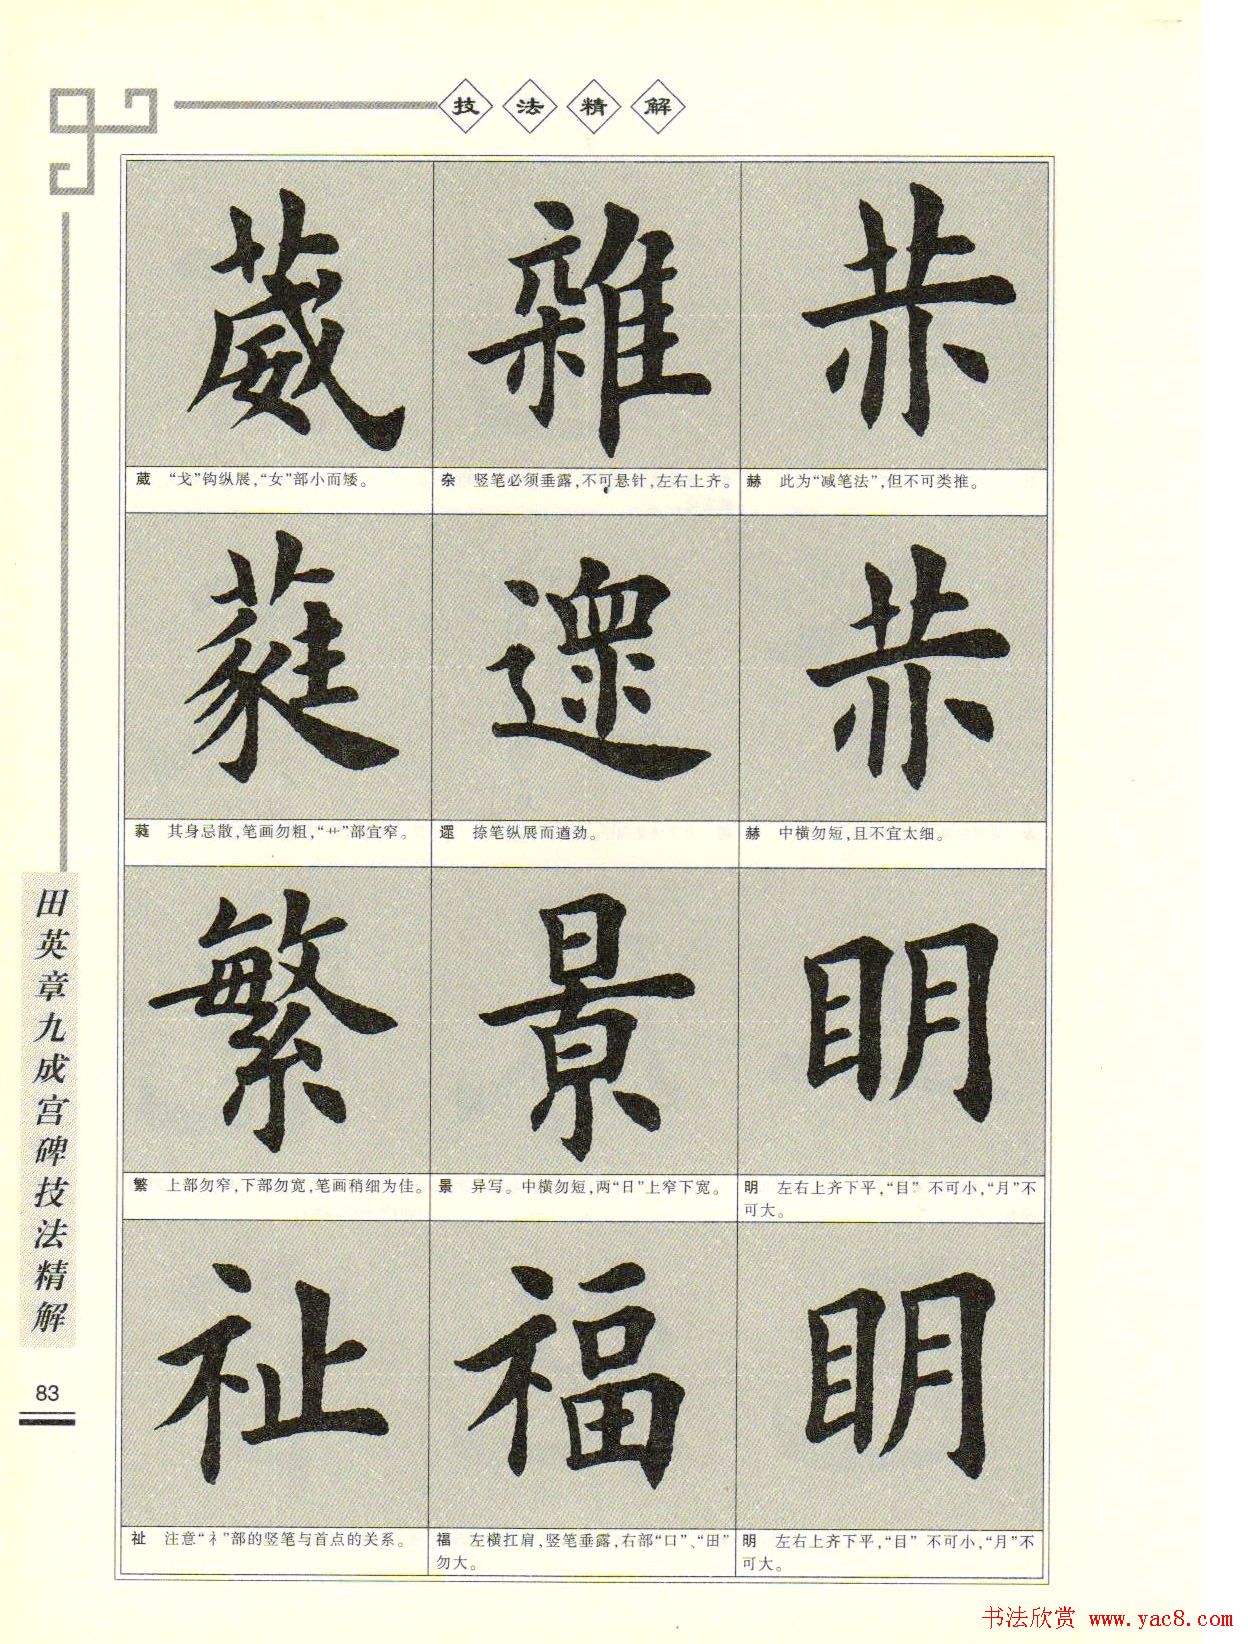 技法精解
葳 雜 赫
葳 “戈”钩纵展，“女”部小而矮。
杂 竖笔必须垂露，不可悬针，左右上齐。
赫 此为“减笔法”，但不可类推。
蕤 遝 赫
蕤 其身忌散，笔画勿粗，“艹”部宜窄。
遝 捺笔纵展而遒劲。
赫 中横勿短，且不宜太细。
繁 景 明
繁 上部勿窄，下部勿宽，笔画稍细为佳。
景 异写。中横勿短，两“日”上窄下宽。
明 左右上齐下平，“目” 不可小，“月”不
可大。
祉 福 明
祉 注意“礻”部的竖笔与首点的关系。
福 左横扛肩，竖笔垂露，右部“口”、“田”
勿大。
明 左右上齐下平，“目” 不可小，“月”不
可大。
田英章九成宫碑技法精解
83
书法欣赏 www.yac8.com